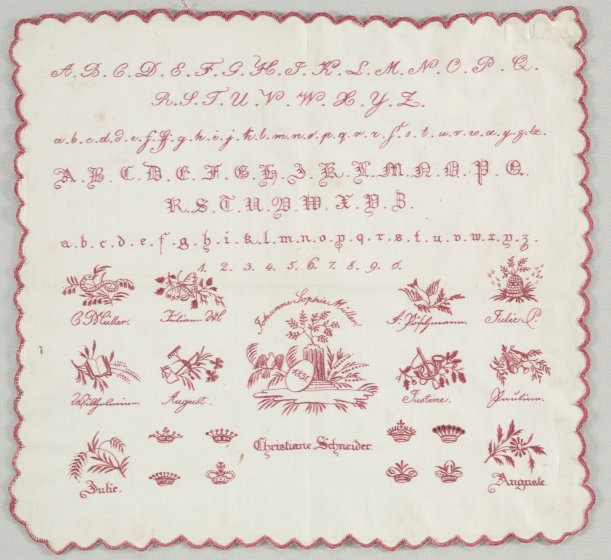 A. B. C. D. E. F. G. H. I. K. L. M. N. O. P. Q.
R. S. T. U. V. W. X. Y. Z.
a. b. c. d. d. e. f. ff. g. h. i. j. k. l. m. n. o. p. q. r. r. s. t. u. v. w. x. y. z. tz.
A. B. C. D. E. F. G. H. J. K. L. M. N. O. P. Q.
R. S. T. U. V. W. X. Y. Z.
a. b. c. d. e. f. g. h. i. k. l. m. n. o. p. q. r. s. t. u. v. w. x. y. z.
1. 2. 3. 4. 5. 6. 7. 8. 9. 0.
Johanne Sophie Müller
C. Müller.
Julie P.
Wilhelmine
August.
Justine.
Christiane Schneider.
Julie.
Auguste